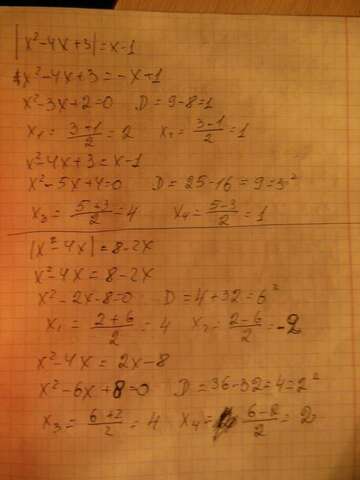 |x²-4x+3|=x-1
x²-4x+3=-x+1
x²-3x+2=0 D=9-8=1
x₁=\frac{3+1}{2}=2 x₂=\frac{3-1}{2}=1
x²-4x+3=x-1
x²-5x+4=0 D=25-16=9=3²
x₃=\frac{5+3}{2}=4 x₄=\frac{5-3}{2}=1
|x²-4x|=8-2x
x²-4x=8-2x
x²-2x-8=0 D=4+32=6²
x₁=\frac{2+6}{2}=4 x₂=\frac{2-6}{2}=-2
x²-4x=2x-8
x²-6x+8=0 D=36-32=4=2²
x₃=\frac{6+2}{2}=4 x₄=\frac{6-2}{2}=2